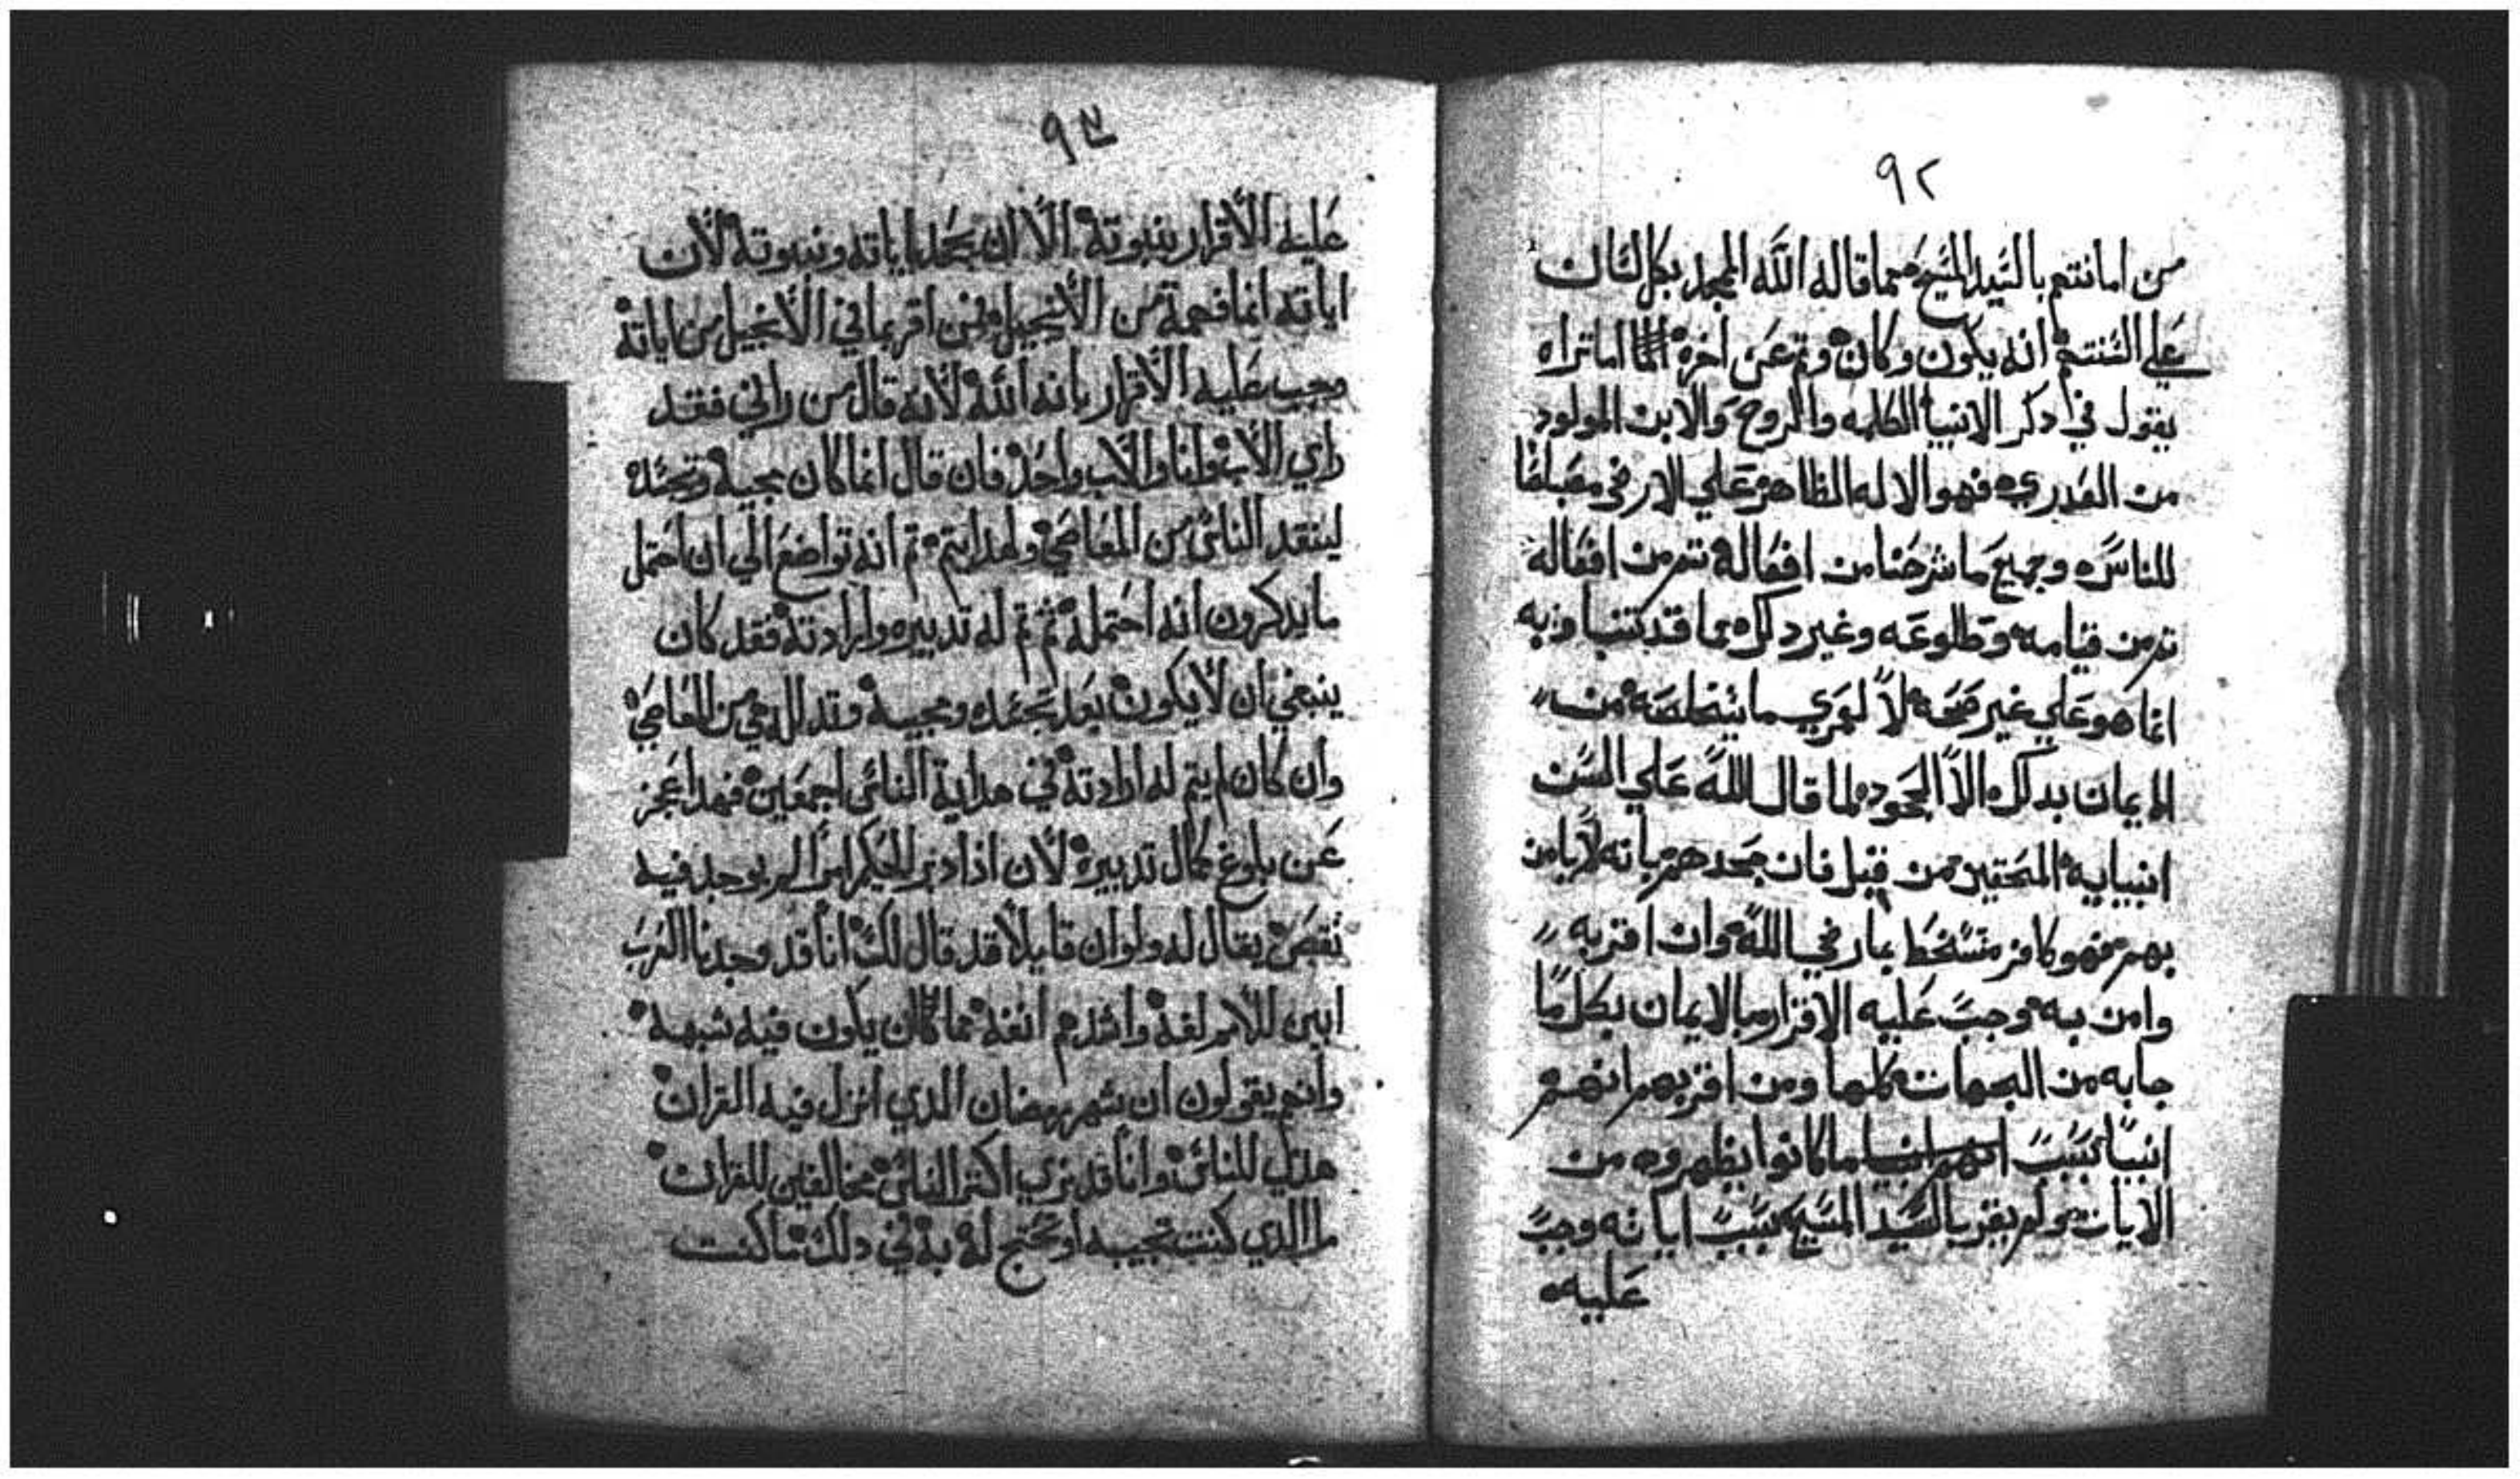 ٩٢
من امانتهم بالسَيد المسَيح مما قاله اللّه الممجد بكل لسَان
علي السَنتهم انه يكون وكان وتم عَن اخره اما تراه
يقول في دكر الانبيا الكلمه والروح والابن المولود
من فهو الاله الظاهر عَلي الارض
للناسَ وجميعَ ما شرحَنا من افعَاله تم من افعَاله
تم من قيامه وطلوعَه وغير دلك مما قد كتب
انما هو عَلي غير صَحَه لا لعمري ما من
الايمان بدلك الا الجحَود لما قال اللّه عَلي السَن
انبيايه من قبل فان جحَدهم بانه لا يامن
بهم فهو كافر متسَخط بما رضي اللّه وان اقر به
وامن به وجبَ عَليه الاقرار والايمان بكل ما
جا به من الجهات كلها ومن اقر بهم انهم
انبيا بسَببَ ما كانوا يظهروه من
الايات ولم يقر بالسَيد المسَيح بسَببَ اياته وجبَ
عَليه
٩٣
عَليه الأقرار بنبوته الّا ان يجحَد اياته ونبوته لأن
اياته انما فهمة من الأنجيل ومن اقر بما في الأنجيل من اياته
وجب عَليه الأقرار بانه اللّه لأنه قال من راني فقد
راي الأب وانا والأب واحَد فان قال انما كان مجيه وتجسَده
لينقد الناسَ من المعَاصَي ولم يتم ثم انه تواضعَ الي ان احَتمل
ما يدكرون انه احَتمله ثم تم له تدبيره وارادته فقد كان
ينبغي ان لا يكون بعَد تجسَده ومجيه من المعَاصَي
وان كان لم يتم له ارادته في هداية الناسَ اجمعَين فهدا عَجز
عَن بلوغ كمال تدبيره لأن ادا دبر الحَكيم امرًا لم يوجد فيه
نقصَ يقال له ولو ان قايلًا قد قال لك انا قد وجدنا العَربَ
ابين للأمر لغة واشدهم انفة مما كان يكون فيه شبهة
وانهم يقولون ان شهر رمضان الدي انزل فيه القران
هدي للناسَ وانا قد نري اكثر الناسَ مخالفين للقران
ما الدي كنت تجيبه او تحَتج له به في دلك ما كنت